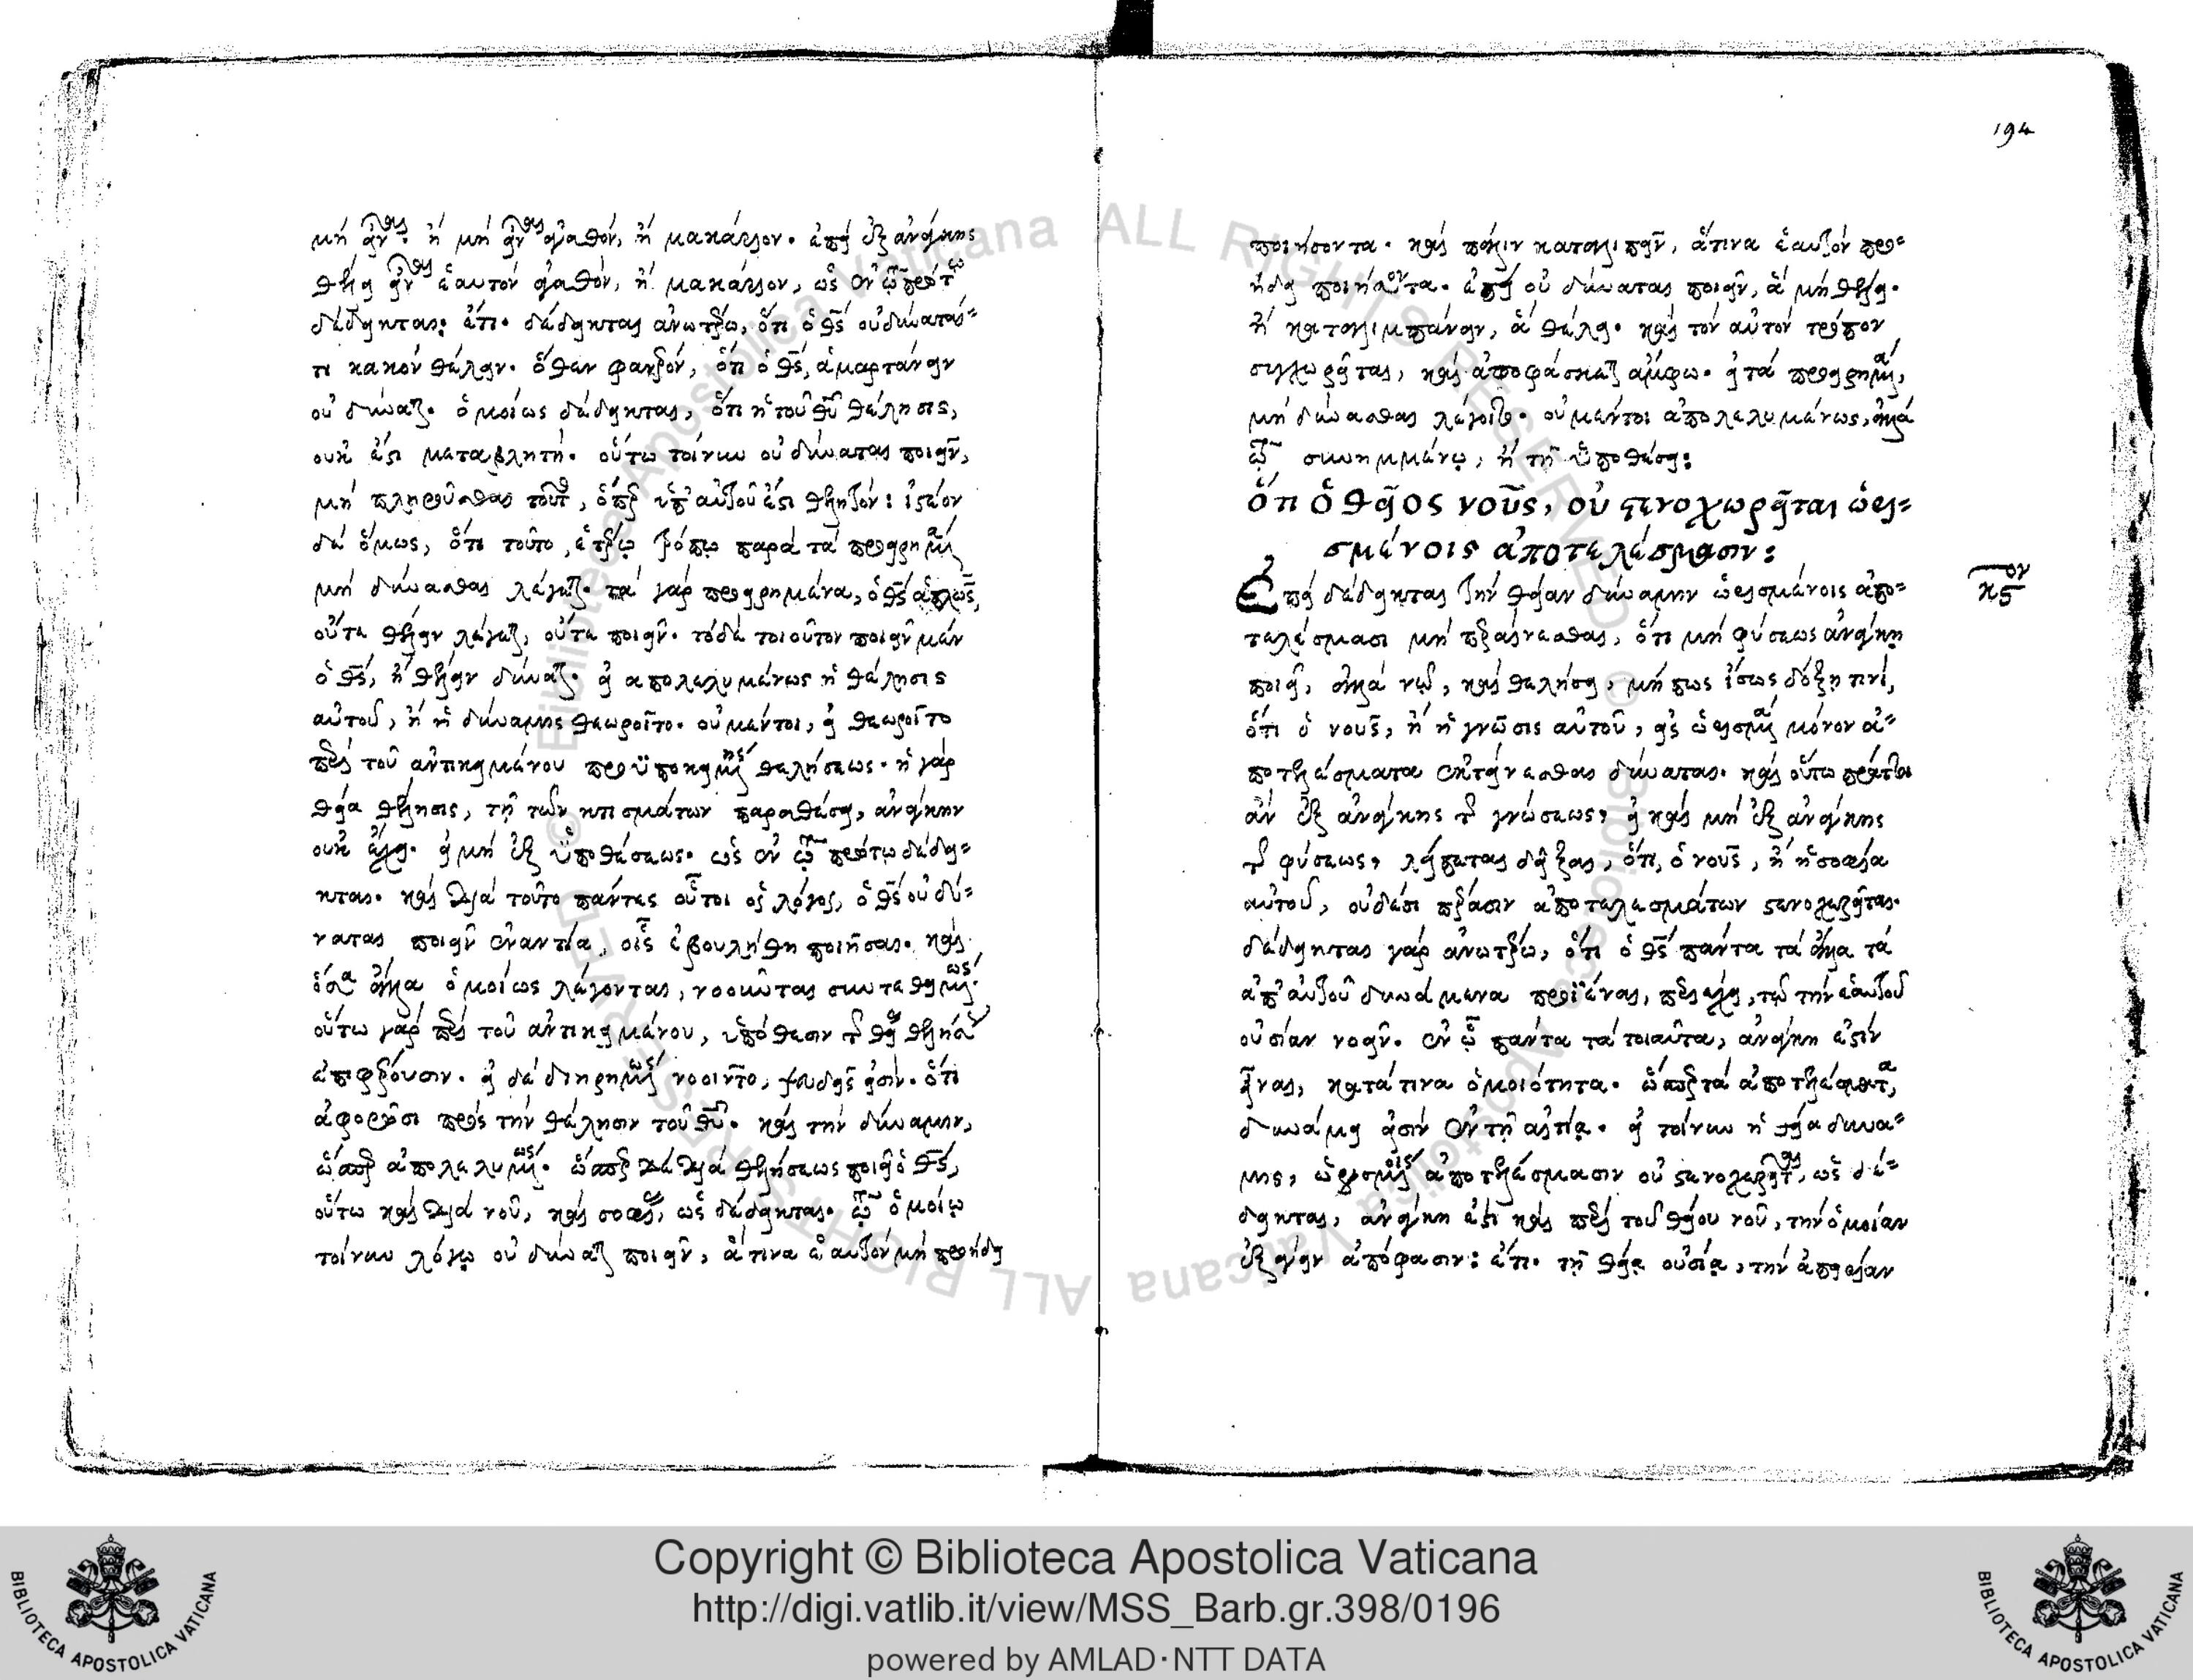 μὴ εἶναι· ἢ μὴ εἶναι ἀγαθὸν, ἢ μακάριον. ἐπεὶ ἐξ ἀνάγκης
θέλει εἶναι ἑαυτὸν ἀγαθὸν, ἢ μακάριον, ὡς ἐν τῷ πρώτῳ
δέδεικται: ἔτι. δέδεικται ἀνωτέρω, ὅτι ὁ θς οὐ δύναταί
τι κακὸν θέλειν. ὅθεν φανερὸν, ὅτι ὁ θς, ἁμαρτάνειν
οὐ δύναται. ὁμοίως δέδεικται, ὅτι ἡ τοῦ θυ θέλησις,
οὐκ ἔστι μεταβλητή. οὕτω τοίνυν οὐ δύναται ποιεῖν,
μὴ πληροῦσθαι τοῦτο, ὅπερ ὑπ' αὐτοῦ ἐστι θελητόν: ἰστέον
δὲ ὅμως, ὅτι τοῦτο, ἑτέρῳ τρόπῳ παρὰ τὰ προειρημένα
μὴ δύνασθαι λέγεται. τὰ γὰρ προειρημένα, ὁ θς ἁπλῶς,
οὔτε θέλειν λέγεται, οὔτε ποιεῖν. τὸ δὲ τοιοῦτον ποιεῖν μὲν
ὁ θς, ἢ θέλειν δύναται. εἰ απολελυμένως ἡ θέλησις
αὐτοῦ, ἢ ἡ δύναμις θεωροῖτο. οὐ μέντοι, εἰ θεωροῖτο
περὶ τοῦ ἀντικειμένου προϋποκειμένης θελήσεως. ἡ γὰρ
θεία θέλησις, τῇ τῶν κτισμάτων παραθέσει, ἀνάγκην
οὐκ ἔχει. εἰ μὴ ἐξ ὑποθέσεως. ὡς ἐν τῷ πρώτῳ δέδει-
κται. καὶ διὰ τοῦτο πάντες οὗτοι οἱ λόγοι, ὁ θς οὐ δύ-
ναται ποιεῖν ἐναντία, οἷς ἐβουλήθη ποιῆσαι. καὶ
ὅσα ἄλλα ὁμοίως λέγονται, νοοῦνται συντεθειμένως.
οὕτω γὰρ περὶ τοῦ ἀντικειμένου, ὑπόθεσιν τῆς θείας θελήσεως
ἐπιφέρουσιν. εἰ δὲ διῃρημένως νοοῖντο, ψευδεῖς εἰσίν. ὅτι
ἀφορῶσι πρὸς τὴν θέλησιν τοῦ θυ. καὶ τὴν δύναμιν,
ὥσπερ ἀπολελυμένως. ὥσπερ δὲ διὰ θελήσεως ποιεῖ ὁ θς,
οὕτω καὶ διὰ νοῦ, καὶ σοφίας, ὡς δέδεικται. τῷ ὁμοίῳ
τοίνυν λόγῳ οὐ δύναται ποιεῖν, ἅτινα ἑαυτὸν μὴ προῄδει
194
ποιήσοντα. καὶ πάλιν καταλιπεῖν, ἅτινα ἑαυτὸν προ-
ῄδει ποιήσοντα. ἐπεὶ οὐ δύναται ποιεῖν, ἃ μὴ θέλει.
ἢ καταλιμπάνειν, ἃ θέλει. καὶ τὸν αὐτὸν τρόπον
συγχωρεῖται, καὶ ἀποφάσκεται ἄμφω. εἰ τὰ προειρημένα,
μὴ δύνασθαι λέγοιτο. οὐ μέντοι ἀπολελυμένως, ἀλλὰ
τῷ συνημμένῳ, ἢ τῇ ὑποθέσει:
ὅτι ὁ θεῖος νοῦς, οὐ στενοχωρεῖται ὡρι-
σμένοις ἀποτελέσμασιν:
Ἐπεὶ δέδεικται τὴν θείαν δύναμιν ὡρισμένοις ἀπο-
κϛον
τελέσμασι μὴ περαίνεσθαι, ὅτι μὴ φύσεως ἀνάγκῃ
ποιεῖ, ἀλλὰ νῷ, καὶ θελήσει, μή πως ἴσως δόξῃ τινὶ,
ὅτι ὁ νοῦς, ἢ ἡ γνῶσις αὐτοῦ, εἰς ὡρισμένα μόνον ἀ-
ποτελέσματα ἐκτείνεσθαι δύναται. καὶ οὕτω πράττοι
ἂν ἐξ ἀνάγκης τῆς γνώσεως, εἰ καὶ μὴ ἐξ ἀνάγκης
τῆς φύσεως, λείπεται δεῖξαι, ὅτι, ὁ νοῦς, ἢ ἡ σοφία
αὐτοῦ, οὐδέσι πέρασιν ἀποτελεσμάτων στενοχωρεῖται.
δέδεικται γὰρ ἀνωτέρω, ὅτι ὁ θς πάντα τὰ ἄλλα τὰ
ἀπ' αὐτοῦ δυνάμενα προϊέναι, περιέχει, τῷ τὴν ἑαυτοῦ
οὐσίαν νοεῖν. ἐν ᾧ πάντα τὰ τοιαῦτα, ἀνάγκη ἐστὶν
εἶναι, κατά τινα ὁμοιότητα. ὥσπερ τὰ ἀποτελέσματα,
δυνάμει εἰσὶν ἐν τῇ αἰτίᾳ. εἰ τοίνυν ἡ θεία δύνα-
μις, ὡρισμένοις ἀποτελέσμασιν οὐ στενοχωρεῖται, ὡς δέ-
δεικται, ἀνάγκη ἐστὶ καὶ περὶ τοῦ θείου νοῦ, τὴν ὁμοίαν
ἐξάγειν ἀπόφασιν: ἔτι. τῇ θείᾳ οὐσίᾳ, τὴν ἀπειρίαν
Copyright © Biblioteca Apostolica Vaticana
http://digi.vatlib.it/view/MSS_Barb.gr.398/0196
powered by AMLAD·NTT DATA
BIBLIOTECA APOSTOLICA VATICANA
BIBLIOTECA APOSTOLICA VATICANA